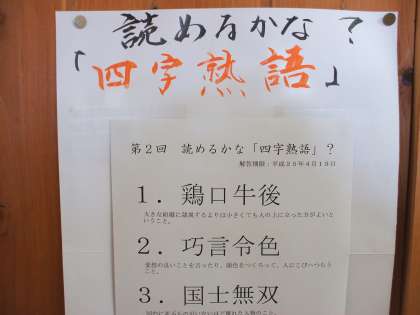 読めるかな？
「四字熟語」
第２回 読めるかな「四字熟語」？
解答期限：平成２５年４月１９日
１．鶏口牛後
大きな組織に隷属するよりは小さくても人の上に立った方がよいと
いうこと。
２．巧言令色
愛想の良いことを言ったり、顔色をつくろって、人にこびへつらう
こと。
３．国士無双